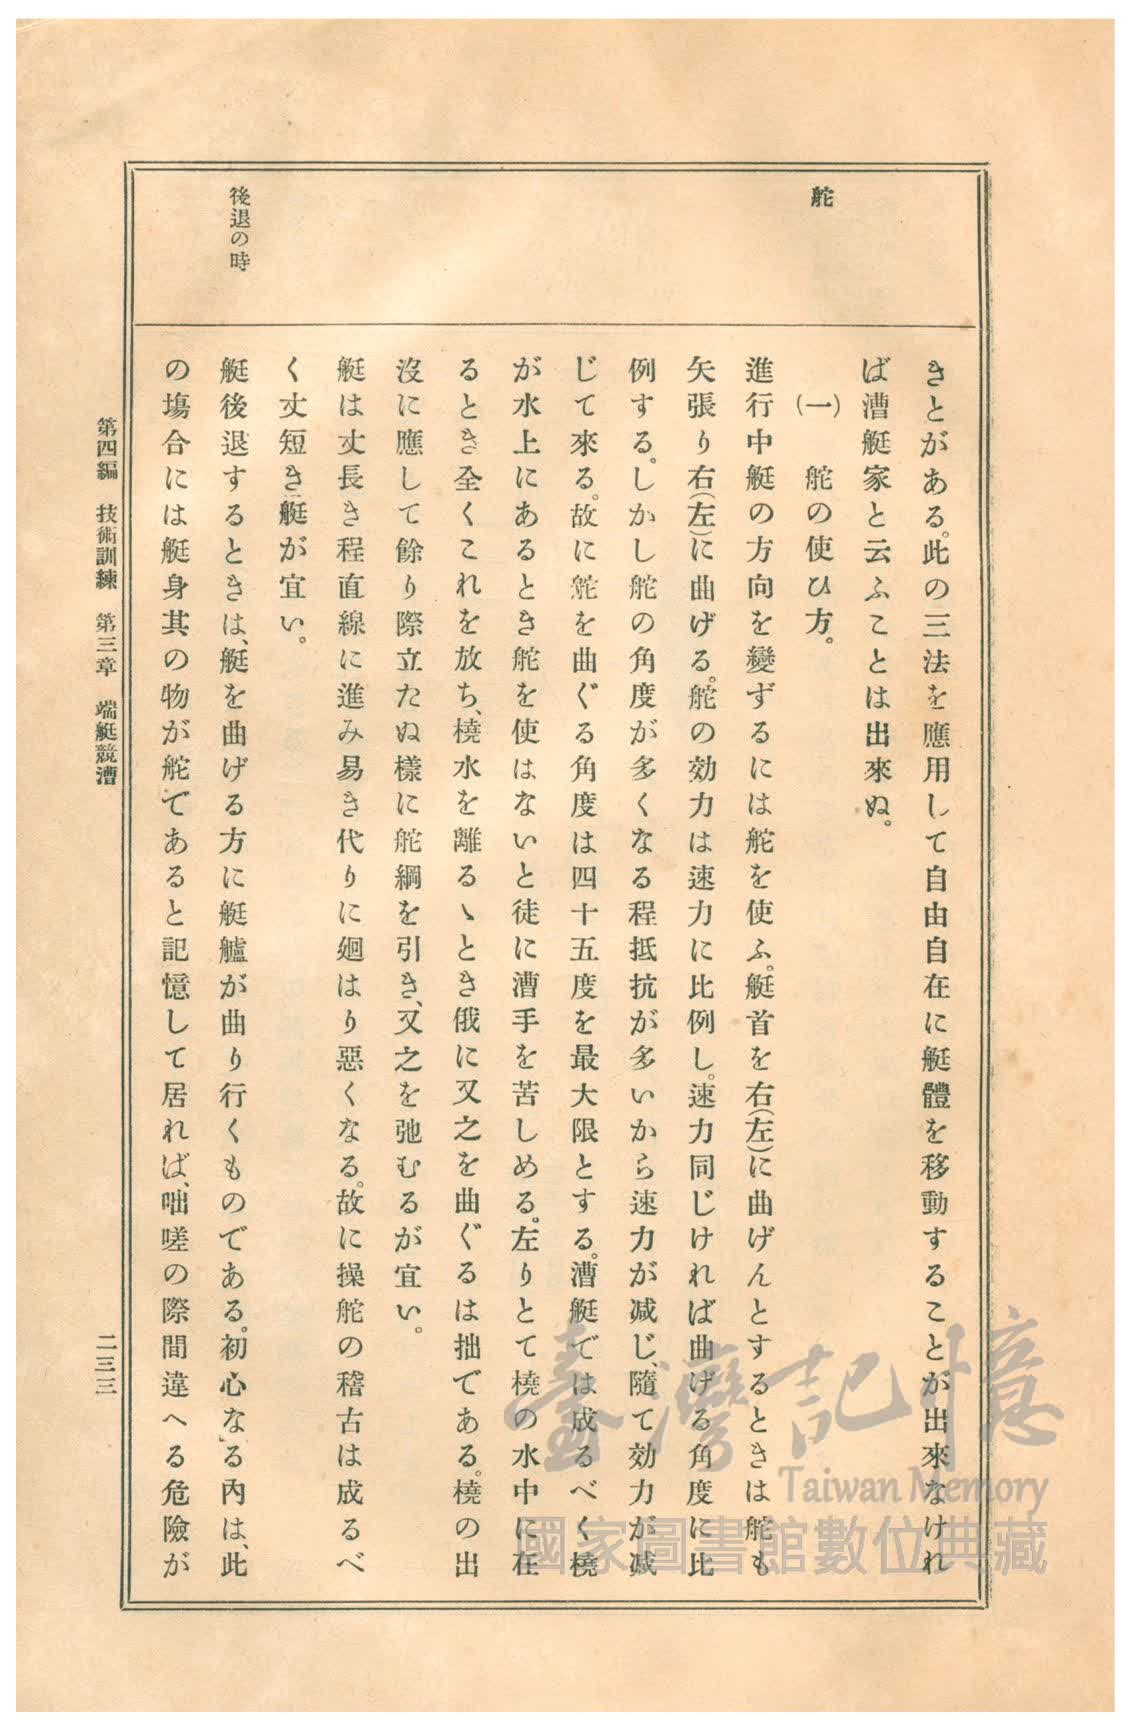 舵
後退の時
きとがある。此の三法を應用して自由自在に艇體を移動することが出來なけれ
ば漕艇家と云ふことは出來ぬ。
(一) 舵の使ひ方。
進行中艇の方向を變ずるには舵を使ふ。艇首を右(左)に曲げんとするときは舵も
矢張り右(左)に曲げる。舵の効力は速力に比例し。速力同じければ曲げる角度に比
例する。しかし舵の角度が多くなる程抵抗が多いから速力が減じ、隨て効力が減
じて來る。故に舵を曲ぐる角度は四十五度を最大限とする。漕艇では成るべく橈
が水上にあるとき舵を使はないと徒に漕手を苦しめる。左りとて橈の水中に在
るとき全くこれを放ち、橈水を離るゝとき俄に又之を曲ぐるは拙である。橈の出
沒に應して餘り際立たぬ樣に舵綱を引き、又之を弛むるが宜い。
艇は丈長き程直線に進み易き代りに廻はり惡くなる。故に操舵の稽古は成るべ
く丈短き艇が宜い。
艇後退するときは、艇を曲げる方に艇艫が曲り行くものである。初心なる內は、此
の塲合には艇身其の物が舵であると記憶して居れば、咄嗟の際間違へる危險が
第四編 技術訓練 第三章 端艇競漕
二三三
臺灣記憶
Taiwan Memory
國家圖書館數位典藏